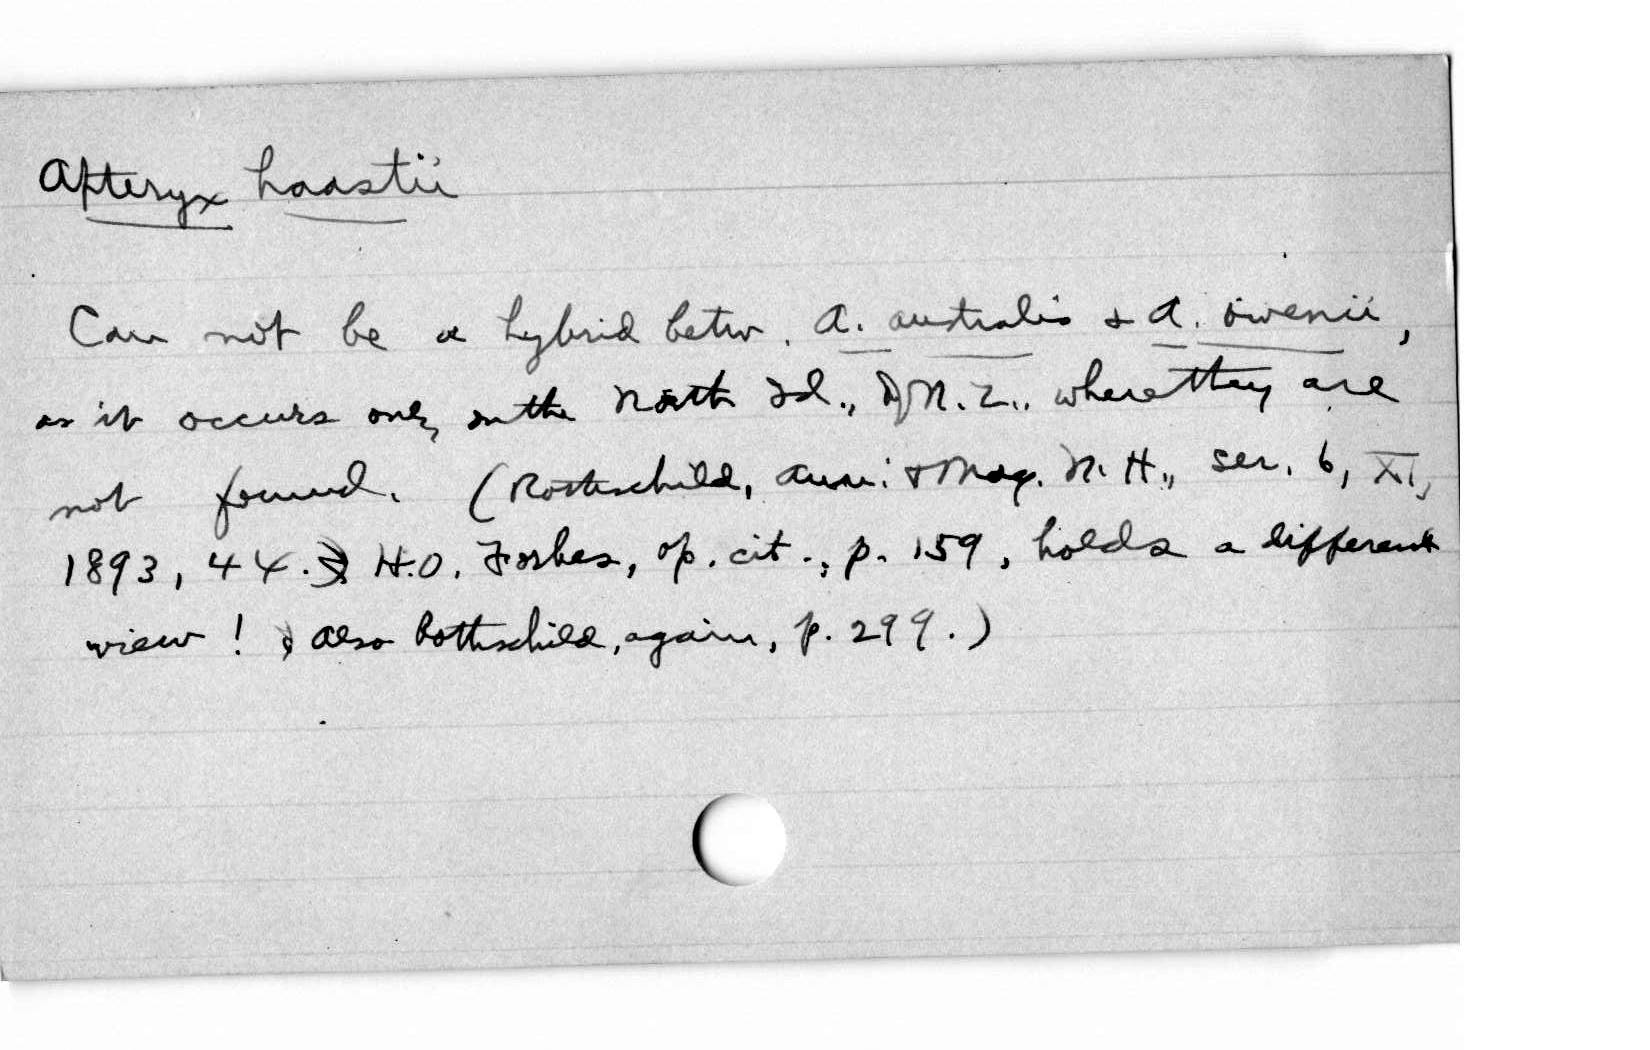 Apteryx haastii
Can not be a hybrid betw. A. australis & A. owenii,
as it occurs only on the North Id., of N.Z., where they are
not found. (Rothschild, Ann. & Mag. N.H., ser. 6, XI,
1893, 44. H.O. Forbes, op. cit., p. 159, holds a different
view! & also Rothschild, again, p. 299.)